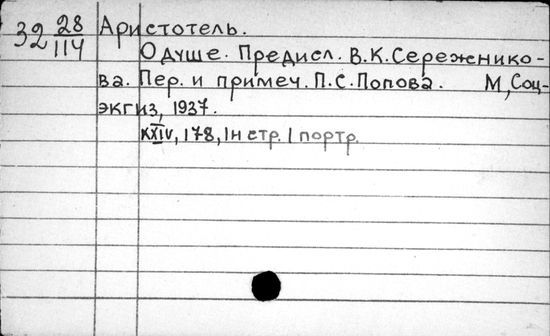 32 28/114 Аристотель.
О душе. Предисл. В.К.Сереженико-
ва. Пер. и примеч. П.С.Попова. М, Соц-
экгиз, 1937.
XXIV, 178, 1н стр. 1 портр.